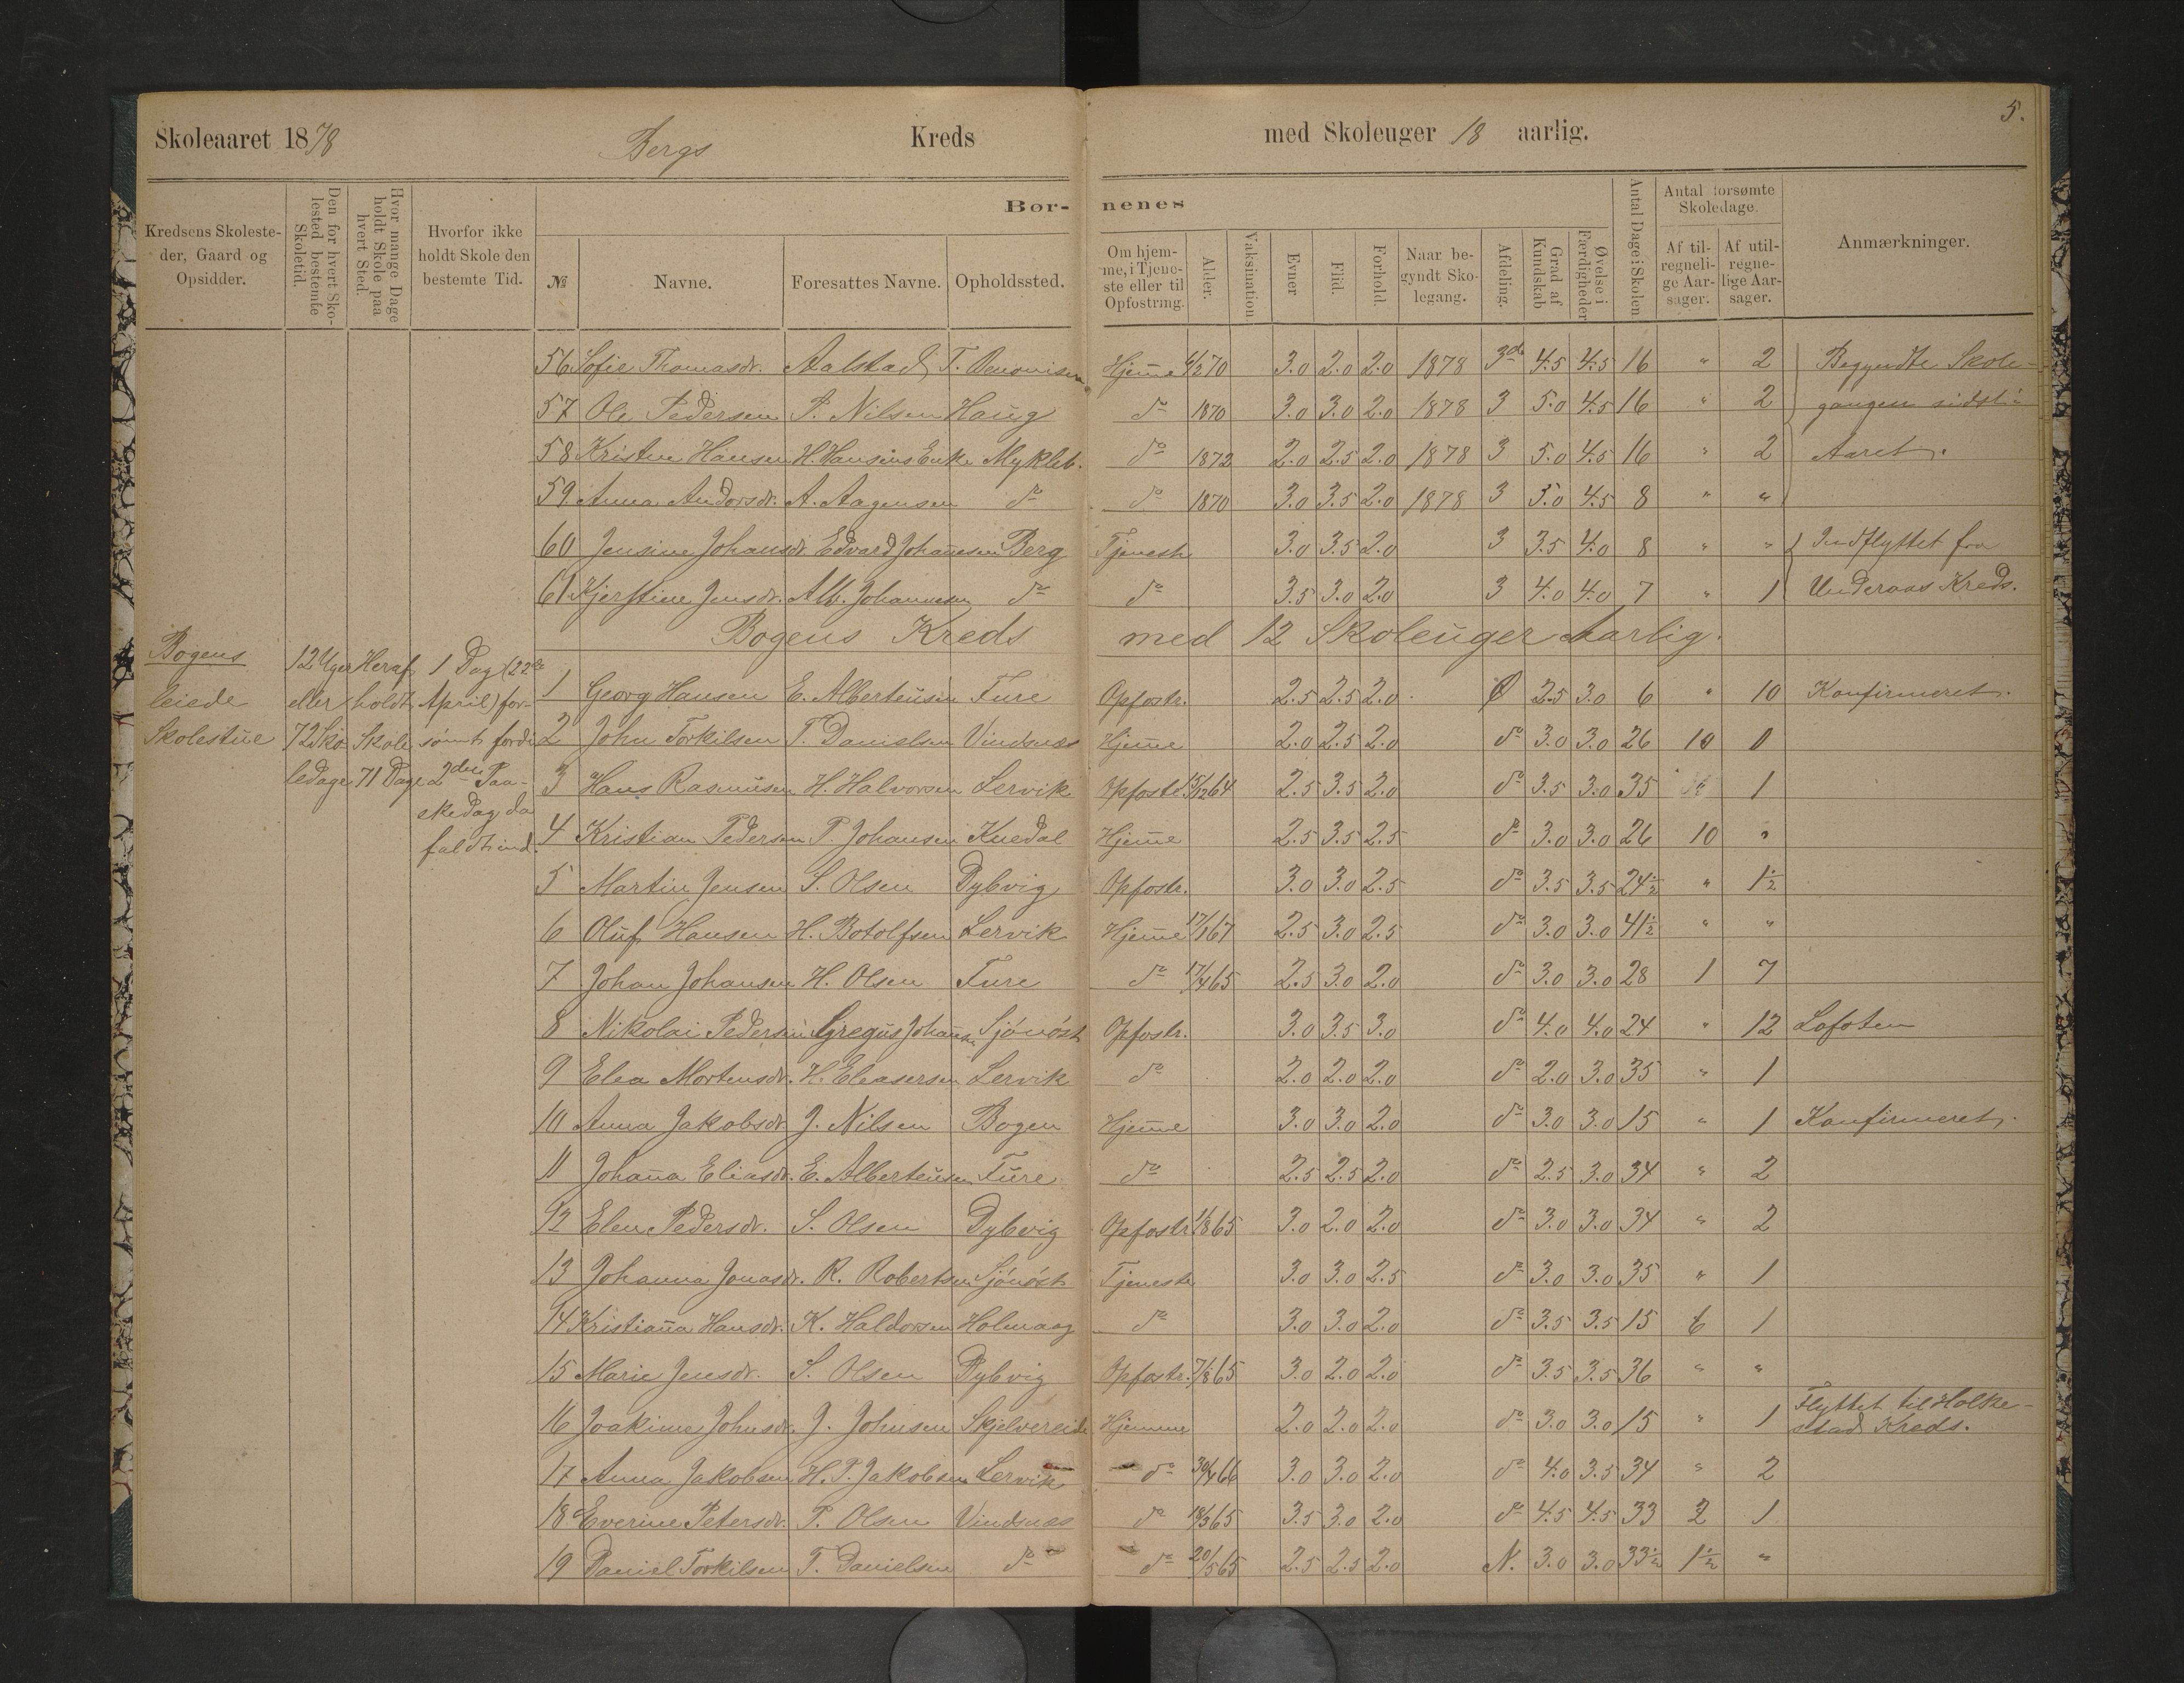 5.
Skoleaaret 1878 Bergs Kreds med Skoleuger 18 aarlig.
Kredsens Skolesteder, Gaard og Opsidder.
Den for hvert Skolested bestemte Skoletid.
Hvor mange Dage holdt Skole paa hvert Sted.
Hvorfor ikke holdt Skole den bestemte Tid.
Børnenes
№ Navne. Foresattes Navne. Opholdssted.
Om hjemme, i Tjeneste eller til Opfostring. Alder. Vaksination. Evner Flid. Forhold. Naar begyndt Skolegang. Afdeling. Grad af Kundskab Øvelse i Færdigheder
Antal Dage i Skolen
Antal forsømte Skoledage.
Af tilregnelige Aarsager. Af utilregnelige Aarsager.
Anmærkninger.
56 Sofie Thomasdr. Aalstad, T. Hjeme 6/2 70 3.0 2.0 2.0 1878 3d 4.5 4.5 16 " 2 Begyndte Skole-
57 Ole Pedersen P. Nilsen Haug do 1870 3.0 3.0 2.0 1878 3 5.0 4.5 16 " 2 gangen sidst i
58 Kristine Hansen H. Hansens Enke Mykleb. do 1872 2.0 2.5 2.0 1878 3 5.0 4.5 16 " 2 Aaret.
59 Anna Andorsdr. A. Aagensen do do 1870 3.0 3.5 2.0 1878 3 5.0 4.5 8 " "
60 Jensine Johansdr. Edvard Johanesen Berg Tjeneste 3.0 3.5 2.0 3 3.5 4.0 8 " " Indflyttet fra
61 Kjerstine Jensdr. Alb. Johannesen do do 3.5 3.0 2.0 3 4.0 4.0 7 " 1 Underaas Kreds.
Bogens Kreds med 12 Skoleuger Aarlig.
Bogens leiede Skolestue
12 Uger eller 72 Skoledage
Heraf holdt Skole 71 Dage
1 Dag (22de April) forsømt fordi 2den Paaskedag da faldt ind.
1 Georg Hansen E. Alberteusen Fure Opfostr. 2.5 2.5 2.0 Ø 2.5 3.0 6 " 10 Konfirmeret.
2 John Torkilsen T. Danielsen Vindsnæs Hjeme 2.0 2.5 2.0 do 3.0 3.0 26 10 0
3 Hans Rasmusen H. Halvorsen Lervik Opfostr. 15/12 64 2.5 3.5 2.0 do 3.5 3.0 35 " 1
4 Kristian Pedersen P. Johansen Kuedal Hjeme 2.5 3.5 2.5 do 3.0 3.0 26 10 "
5 Martin Jensen S. Olsen Dybvig Opfostr. 3.0 3.0 2.5 do 3.5 3.5 24½ " 1½
6 Oluf Hansen H. Botolfsen Lervik Hjeme 17/1 67 2.5 3.0 2.5 do 3.0 3.0 41½ " "
7 Johan Johansen H. Olsen Fure do 17/4 65 2.5 3.0 2.0 do 3.0 3.0 28 1 7
8 Nikolai Pedersen Gregus Johansen Sjónóst Opfostr. 3.0 3.5 3.0 do 4.0 4.0 24 " 12 Lofoten
9 Elea Mortensdr. H. Eleasersen Lervik do 2.0 2.0 2.0 do 2.0 3.0 35 " 1
10 Anna Jakobsdr. J. Nilsen Bogen Hjeme 3.0 3.0 2.0 do 3.0 3.0 15 " 1 Konfirmeret.
11 Johana Eliasdr. E. Alberteusen Fure do 2.5 2.5 2.0 do 2.5 3.0 34 " 2
12 Elen Pedersdr. S. Olsen Dybvig Opfostr. 11/8 65 3.0 2.0 2.0 do 3.0 3.0 34 " 2
13 Johanna Jonasdr. R. Robertsen Sjónóst Tjeneste 3.0 3.0 2.5 do 3.0 3.0 35 " 1
14 Kristiana Hansdr. K. Haldorsen Holmaag do 3.0 3.0 2.0 do 3.5 3.5 15 6 1
15 Marie Jensdr. S. Olsen Dybvig Opfostr. 7/8 65 3.0 2.0 2.0 do 3.5 3.5 36 " "
16 Joakime Johnsdr. J. Johnsen Skjelvereide Hjemme 2.0 2.0 2.0 do 3.0 3.0 15 " 1 Flyttet til Holkestad Kreds.
17 Anna Jakobsen H. P. Jakobsen Lervik do 30/4 66 3.0 3.0 2.0 do 4.0 3.5 34 " 2
18 Everine Petersdr. P. Olsen Vindsnæs do 18/3 65 3.5 3.0 2.0 do 4.5 4.5 33 2 1
19 Daniel Torkilsen T. Danielsen do do 20/5 65 2.5 2.5 2.0 N. 3.0 3.0 33½ 1½ "